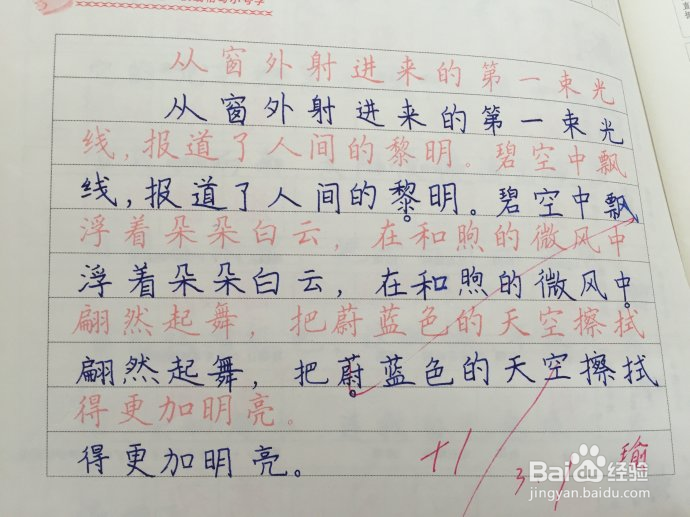 从窗外射进来的第一束光
从窗外射进来的第一束光
线,报道了人间的黎明。碧空中飘
线,报道了人间的黎明。碧空中飘
浮着朵朵白云,在和煦的微风中
浮着朵朵白云,在和煦的微风中
翩然起舞,把蔚蓝色的天空擦拭
翩然起舞,把蔚蓝色的天空擦拭
得更加明亮。
得更加明亮。
+1
瑜
Baidu经验
jingyan.baidu.com